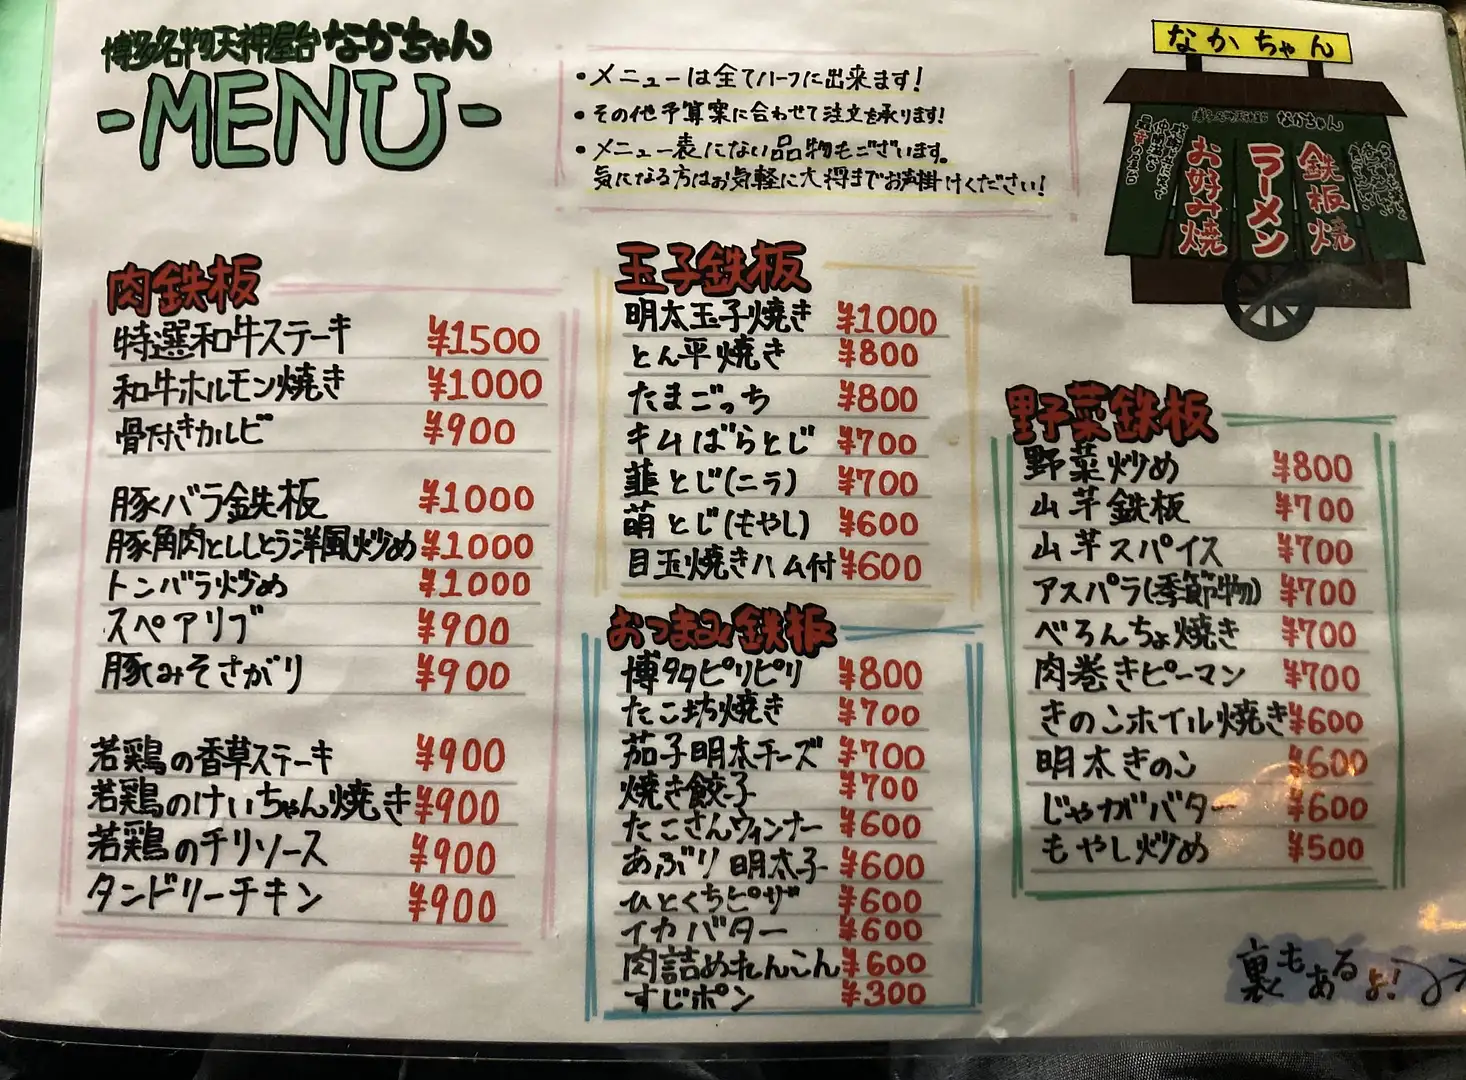 博多名物天神屋台 なかちゃん
-MENU-
・メニューは全てハーフに出来ます!
・その他予算案に合わせて注文を承ります!
・メニュー表にない品物もございます。
気になる方はお気軽に大将までお声掛けください!
なかちゃん
博多名物天神屋台 なかちゃん
お好み焼
ラーメン
鉄板焼
肉鉄板
特選和牛ステーキ ¥1500
和牛ホルモン焼き ¥1000
骨付きカルビ ¥900
豚バラ鉄板 ¥1000
豚角肉とししとう洋風炒め ¥1000
トンバラ炒め ¥1000
スペアリブ ¥900
豚みそさがり ¥900
若鶏の香草ステーキ ¥900
若鶏のけいちゃん焼き ¥900
若鶏のチリソース ¥900
タンドリーチキン ¥900
玉子鉄板
明太玉子焼き ¥1000
とん平焼き ¥800
たまごっち ¥800
キムばらとじ ¥700
韮とじ(ニラ) ¥700
萌とじ(もやし) ¥600
目玉焼きハム付 ¥600
おつまみ鉄板
博多ピリピリ ¥800
たこ坊焼き ¥700
茄子明太チーズ ¥700
焼き餃子 ¥700
たこさんウィンナー ¥600
あぶり明太子 ¥600
ひとくちピザ ¥600
イカバター ¥600
肉詰めれんこん ¥600
すじポン ¥300
野菜鉄板
野菜炒め ¥800
山芋鉄板 ¥700
山芋スパイス ¥700
アスパラ(季節物) ¥700
べろんちょ焼き ¥700
肉巻きピーマン ¥700
きのこホイル焼き ¥600
明太きのこ ¥600
じゃがバター ¥600
もやし炒め ¥500
裏もあるよ!